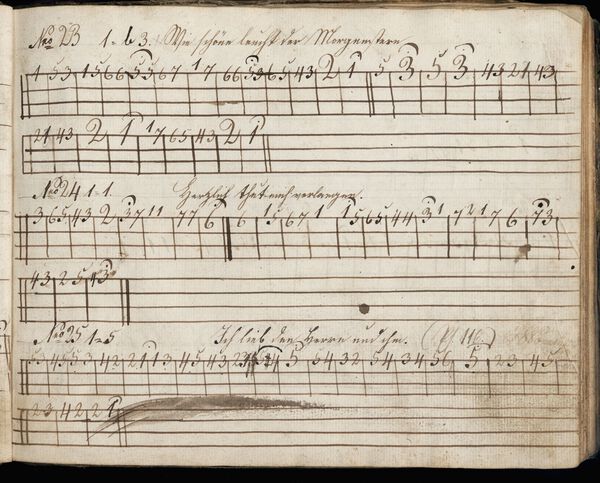 No 23 1-b3. Wie schön leucht der Morgenstern
1 53 15 66 55 67 17 66 53 65 43 2 1 5 3 5 3 43 21 43
21 43 2 1 17 65 43 2 1
No 24 1-1. Herzlich thut mich verlangen.
3 65 43 2 37 11 77 6 6 15 67 1 15 65 44 31 72 17 6 73
43 25 43
No 25 1-5 Ich lieb den Herren und ihm. (Ps 116.)
53 45 53 42 21 13 45 43 5 54 32 54 34 56 5 23 45
23 42 21